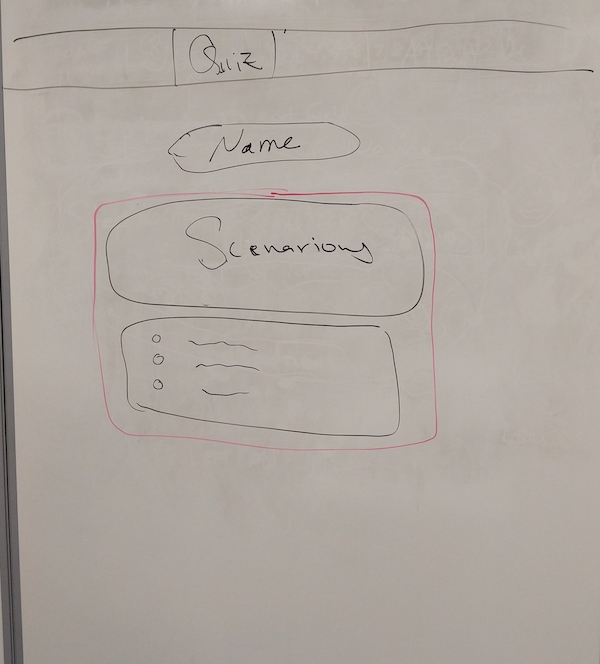 Quiz
Name
Scenarious